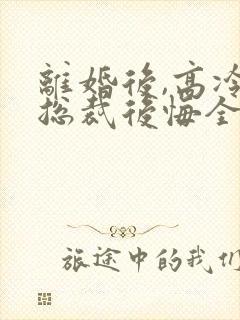 離婚後,高冷
総裁後悔全
旅途中的我们